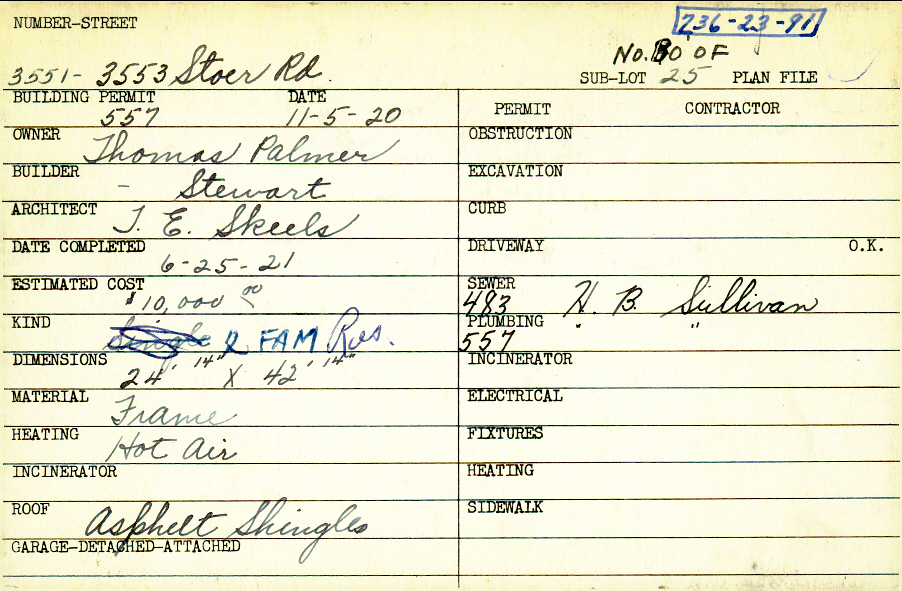 NUMBER-STREET
236-23-91
No. 30' OF
3551- 3553 Stoer Rd.
SUB-LOT 25 PLAN FILE
BUILDING PERMIT DATE
557 11-5-20
PERMIT CONTRACTOR
OWNER Thomas Palmer
OBSTRUCTION
BUILDER - Stewart
EXCAVATION
ARCHITECT J. E. Skeels
CURB
DATE COMPLETED
6-25-21
DRIVEWAY O.K.
ESTIMATED COST
$10,000 00
SEWER
483 H. B. Sullivan
KIND Single 2 FAM Res.
PLUMBING " "
557
DIMENSIONS
24' 14" X 42' 14"
INCINERATOR
MATERIAL Frame
ELECTRICAL
HEATING Hot Air
FIXTURES
INCINERATOR
HEATING
ROOF Asphelt Shingles
SIDEWALK
GARAGE-DETACHED-ATTACHED